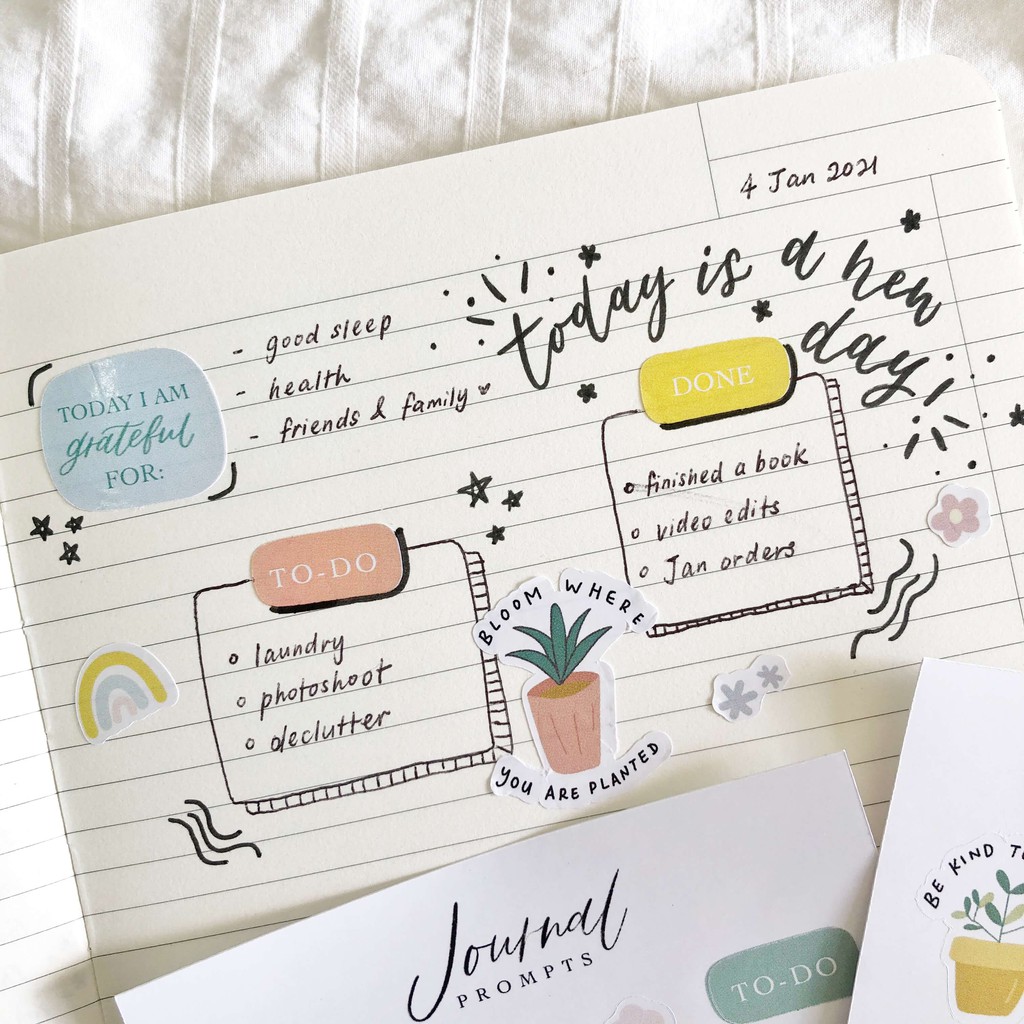 4 Jan 2021
today is a new
day
TODAY I AM
grateful
FOR:
- good sleep
- health
- friends & family
DONE
finished a book
video edits
Jan orders
TO-DO
laundry
photoshoot
declutter
BLOOM WHERE
YOU ARE PLANTED
Journal
PROMPTS
TO-DO
BE KIND